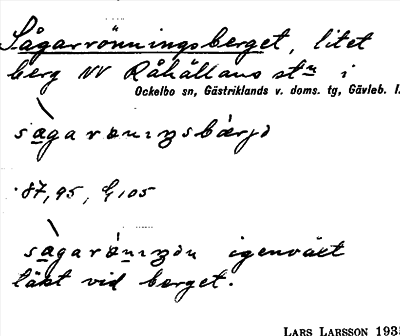 Sågarrönningsberget, litet
berg NV Råhällans stn i
Ockelbo sn, Gästriklands v. doms. tg, Gävleb. l.
sagarønıŋsbærjə
87,95, G105
sagarønıŋən igenväxt
täkt vid berget.
LARS LARSSON 193